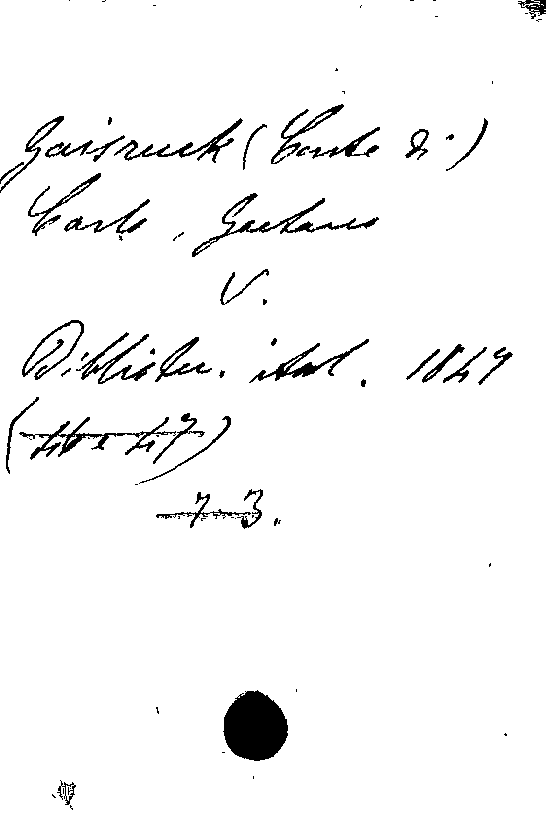 Gaisruck (Conte di)
Carlo, Gaetano
V.
Bibliotec. ital. 1847
(46 e 47)
7 3.